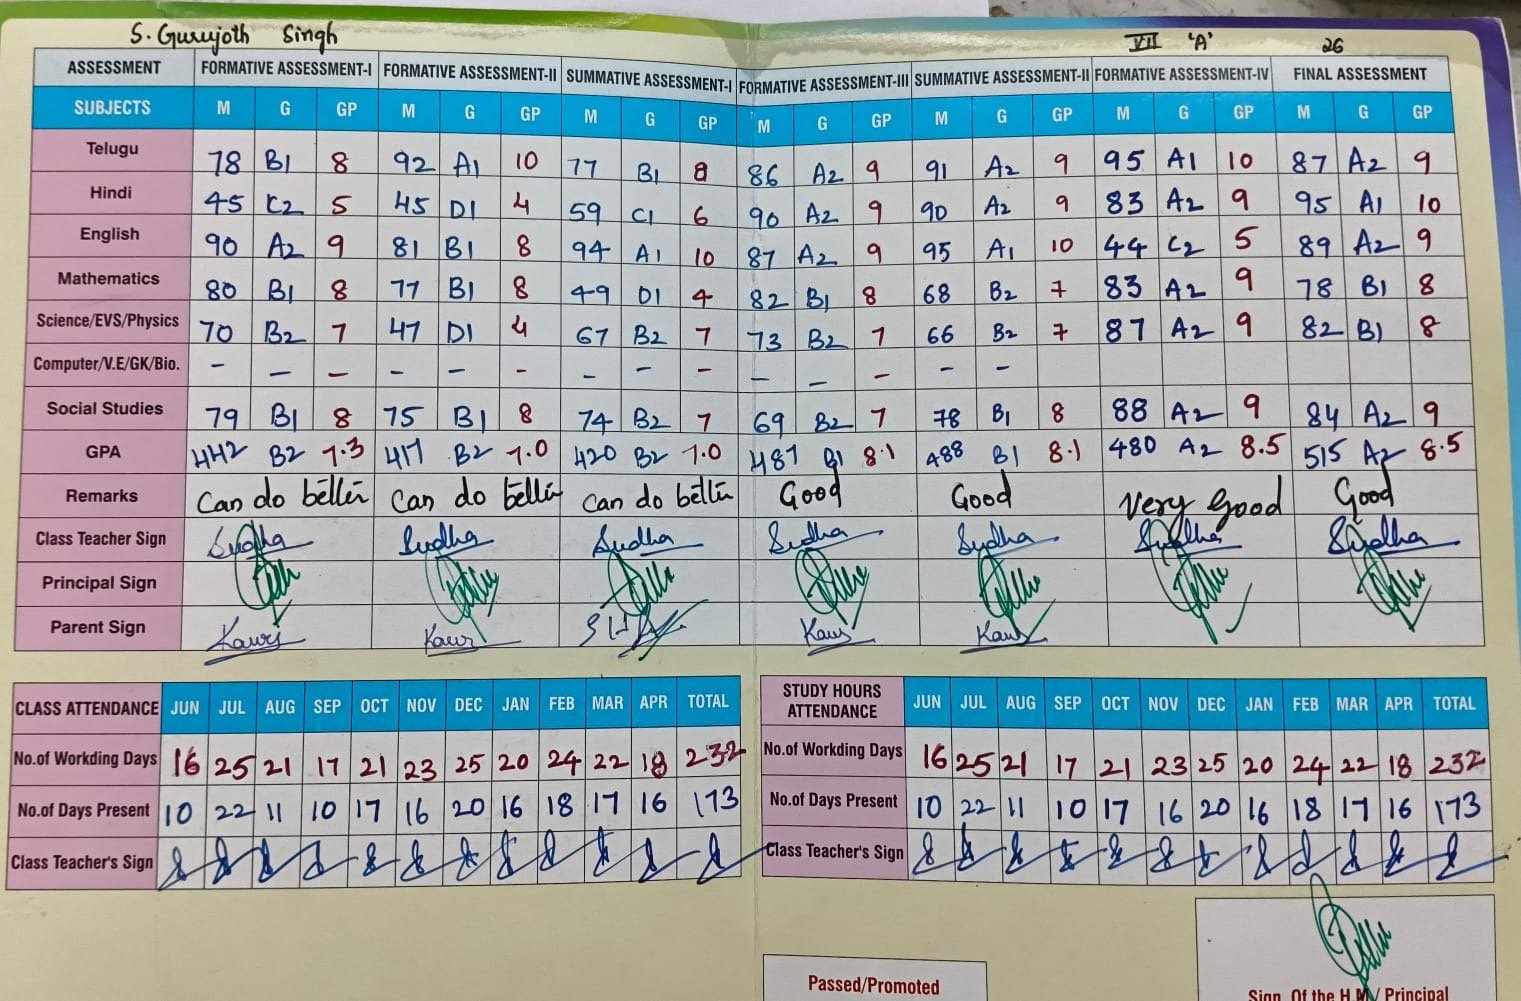 S. Gurujoth Singh VII 'A' 26
ASSESSMENT FORMATIVE ASSESSMENT-I FORMATIVE ASSESSMENT-II SUMMATIVE ASSESSMENT-I FORMATIVE ASSESSMENT-III SUMMATIVE ASSESSMENT-II FORMATIVE ASSESSMENT-IV FINAL ASSESSMENT
SUBJECTS M G GP M G GP M G GP M G GP M G GP M G GP M G GP
Telugu 78 B1 8 92 A1 10 77 B1 8 86 A2 9 91 A2 9 95 A1 10 87 A2 9
Hindi 45 C2 5 45 D1 4 59 C1 6 90 A2 9 90 A2 9 83 A2 9 95 A1 10
English 90 A2 9 81 B1 8 94 A1 10 87 A2 9 95 A1 10 44 C2 5 89 A2 9
Mathematics 80 B1 8 77 B1 8 49 D1 4 82 B1 8 68 B2 7 83 A2 9 78 B1 8
Science/EVS/Physics 70 B2 7 47 D1 4 67 B2 7 73 B2 7 66 B2 7 87 A2 9 82 B1 8
Computer/V.E/GK/Bio. - - - - - - - - - - - - - -
Social Studies 79 B1 8 75 B1 8 74 B2 7 69 B2 7 78 B1 8 88 A2 9 84 A2 9
GPA 442 B2 7.3 417 B2 7.0 420 B2 7.0 487 B1 8.1 488 B1 8.1 480 A2 8.5 515 A2 8.5
Remarks Can do better Can do better Can do better Good Good Very Good Good
Class Teacher Sign Sudha Sudha Sudha Sudha Sudha Sudha Sudha
Principal Sign
Parent Sign Kaur Kaur Kaur Kaur
CLASS ATTENDANCE JUN JUL AUG SEP OCT NOV DEC JAN FEB MAR APR TOTAL
No.of Workding Days 16 25 21 17 21 23 25 20 24 22 18 232
No.of Days Present 10 22 11 10 17 16 20 16 18 17 16 173
Class Teacher's Sign
STUDY HOURS ATTENDANCE JUN JUL AUG SEP OCT NOV DEC JAN FEB MAR APR TOTAL
No.of Workding Days 16 25 21 17 21 23 25 20 24 22 18 232
No.of Days Present 10 22 11 10 17 16 20 16 18 17 16 173
Class Teacher's Sign
Passed/Promoted
Sign. Of the H.M / Principal